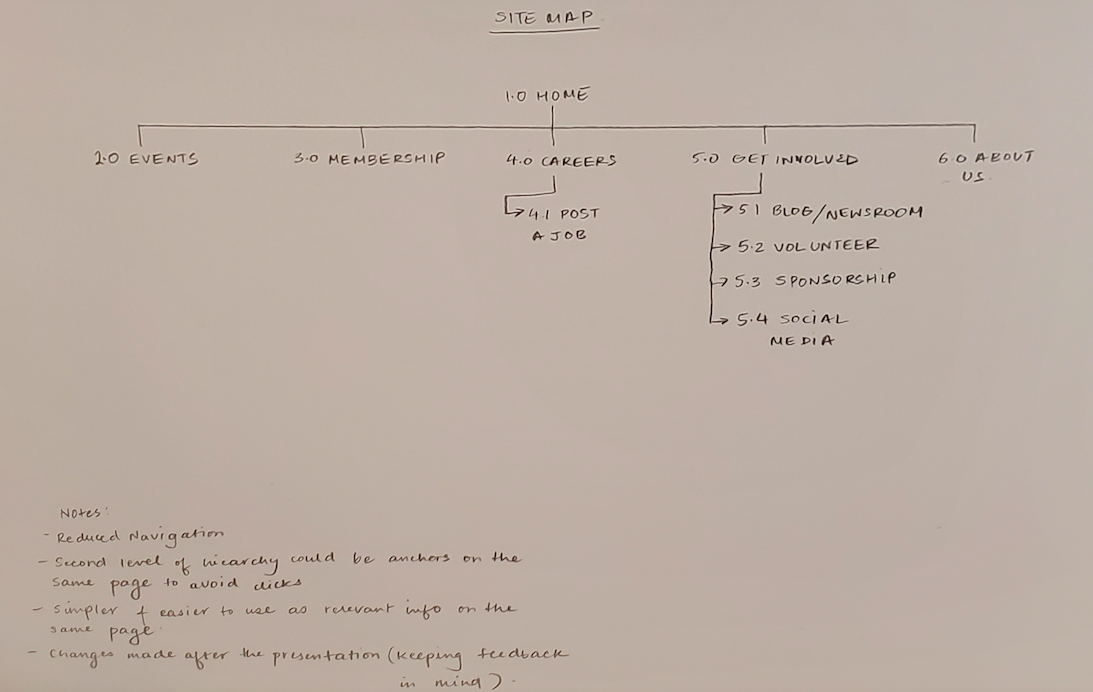 SITE MAP
1.0 HOME
2.0 EVENTS
3.0 MEMBERSHIP
4.0 CAREERS
4.1 POST
A JOB
5.0 GET INVOLVED
5.1 BLOG/NEWSROOM
5.2 VOLUNTEER
5.3 SPONSORSHIP
5.4 SOCIAL
MEDIA
6.0 ABOUT
US
Notes:
- Reduced Navigation
- Second level of hiearchy could be anchors on the
same page to avoid clicks
- Simpler & easier to use as relevant info on the
same page
- Changes made after the presentation (keeping feedback
in mind).